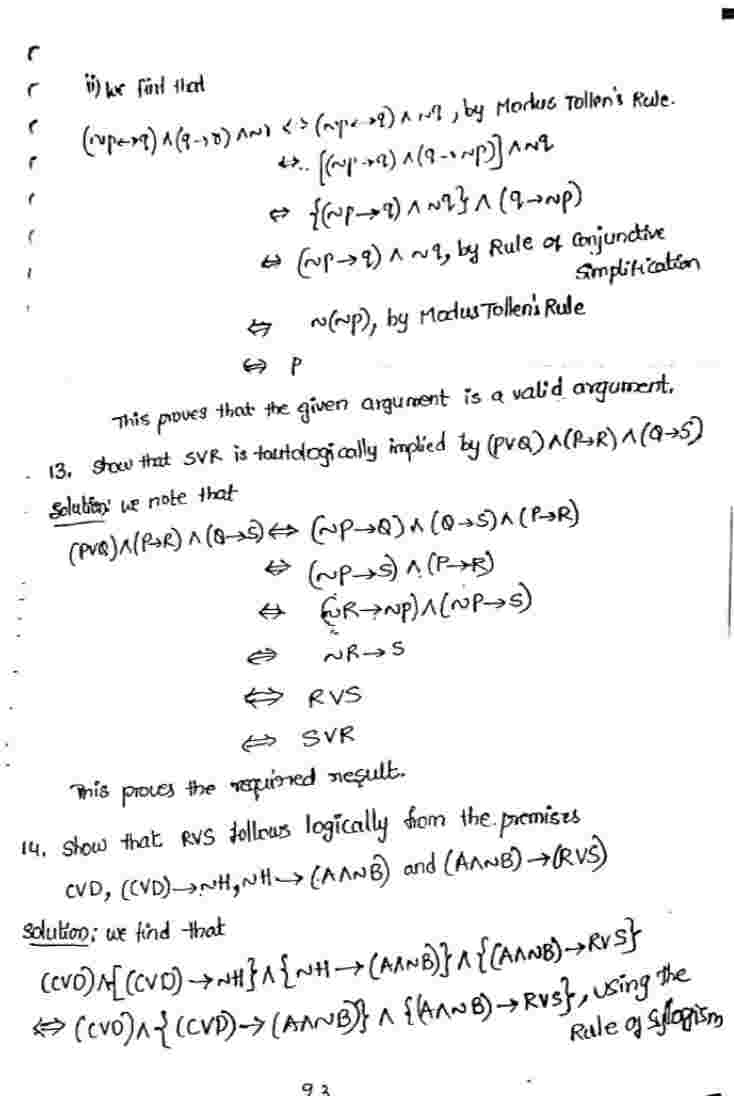 ii) we find that
(~p↔q) ∧ (q→r) ∧ ~r <=> (~p↔q) ∧ ~q, by Modus Tollen's Rule.
⇔ [(~p→q) ∧ (q→~p)] ∧ ~q
⇔ {(~p→q) ∧ ~q} ∧ (q→~p)
⇔ (~p→q) ∧ ~q, by Rule of Conjunctive
Simplification
⇔ ~(~p), by Modus Tollen's Rule
⇔ P
This proves that the given argument is a valid argument.
13. Show that SVR is tautologically implied by (PVQ) ∧ (P→R) ∧ (Q→S)
Solution: we note that
(PVQ) ∧ (P→R) ∧ (Q→S) ⇔ (~P→Q) ∧ (Q→S) ∧ (P→R)
⇔ (~P→S) ∧ (P→R)
⇔ (~R→~P) ∧ (~P→S)
⇔ ~R→S
⇔ RVS
⇔ SVR
This proves the required result.
14. Show that RVS follows logically from the premises
CVD, (CVD)→~H, ~H→(A∧~B) and (A∧~B)→(RVS)
Solution: we find that
(CVD) ∧ {(CVD)→~H} ∧ {~H→(A∧~B)} ∧ {(A∧~B)→RVS}
⇔ (CVD) ∧ {(CVD)→(A∧~B)} ∧ {(A∧~B)→RVS}, using the
Rule of Syllogism
93